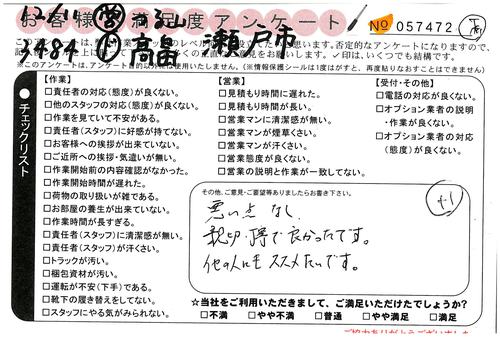 12/11 営 お客様満足度アンケート No 057472
2484 高畠 瀬戸市
※このアンケートは、アンケート目的以外には使用いたしません。(※情報保護シールは1度はがすと、再度貼りなおすことはできません)
チェックリスト
【作業】
□責任者の対応(態度)が良くない。
□他のスタッフの対応(態度)が良くない。
□作業を見ていて不安がある。
□責任者(スタッフ)に好感が持てない。
□お客様への挨拶が出来ていない。
□ご近所への挨拶・気遣いが無い。
□作業開始前の内容確認がなかった。
□作業開始時間が遅れた。
□荷物の取り扱いが雑である。
□お部屋の養生が出来ていない。
□作業時間が長すぎる。
□責任者(スタッフ)に清潔感が無い。
□責任者(スタッフ)が汗くさい。
□トラックが汚い。
□梱包資材が汚い。
□運転が不安(下手)である。
□靴下の履き替えをしてない。
□スタッフにやる気がみられない。
【営業】
□見積もり時間に遅れた。
□見積もり時間が長い。
□営業マンに清潔感が無い。
□営業マンが煙草くさい。
□営業マンが汗くさい。
□営業態度が良くない。
□営業の説明と作業が一致してない。
【受付・その他】
□電話の対応が良くない。
□オプション業者の説明
・作業が良くない。
□オプション業者の対応
(態度)が良くない。
その他、ご意見・ご要望等ありましたらお書き下さい。
悪い点なし。
親切、丁寧で良かったです。
他の人にもススメたいです。
☆当社をご利用いただきまして、ご満足いただけたでしょうか?
□不満 □やや不満 □普通 □やや満足 □満足